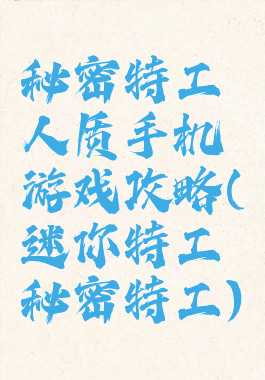 秘密特工
人质手机
游戏攻略(
迷你特工
秘密特工)